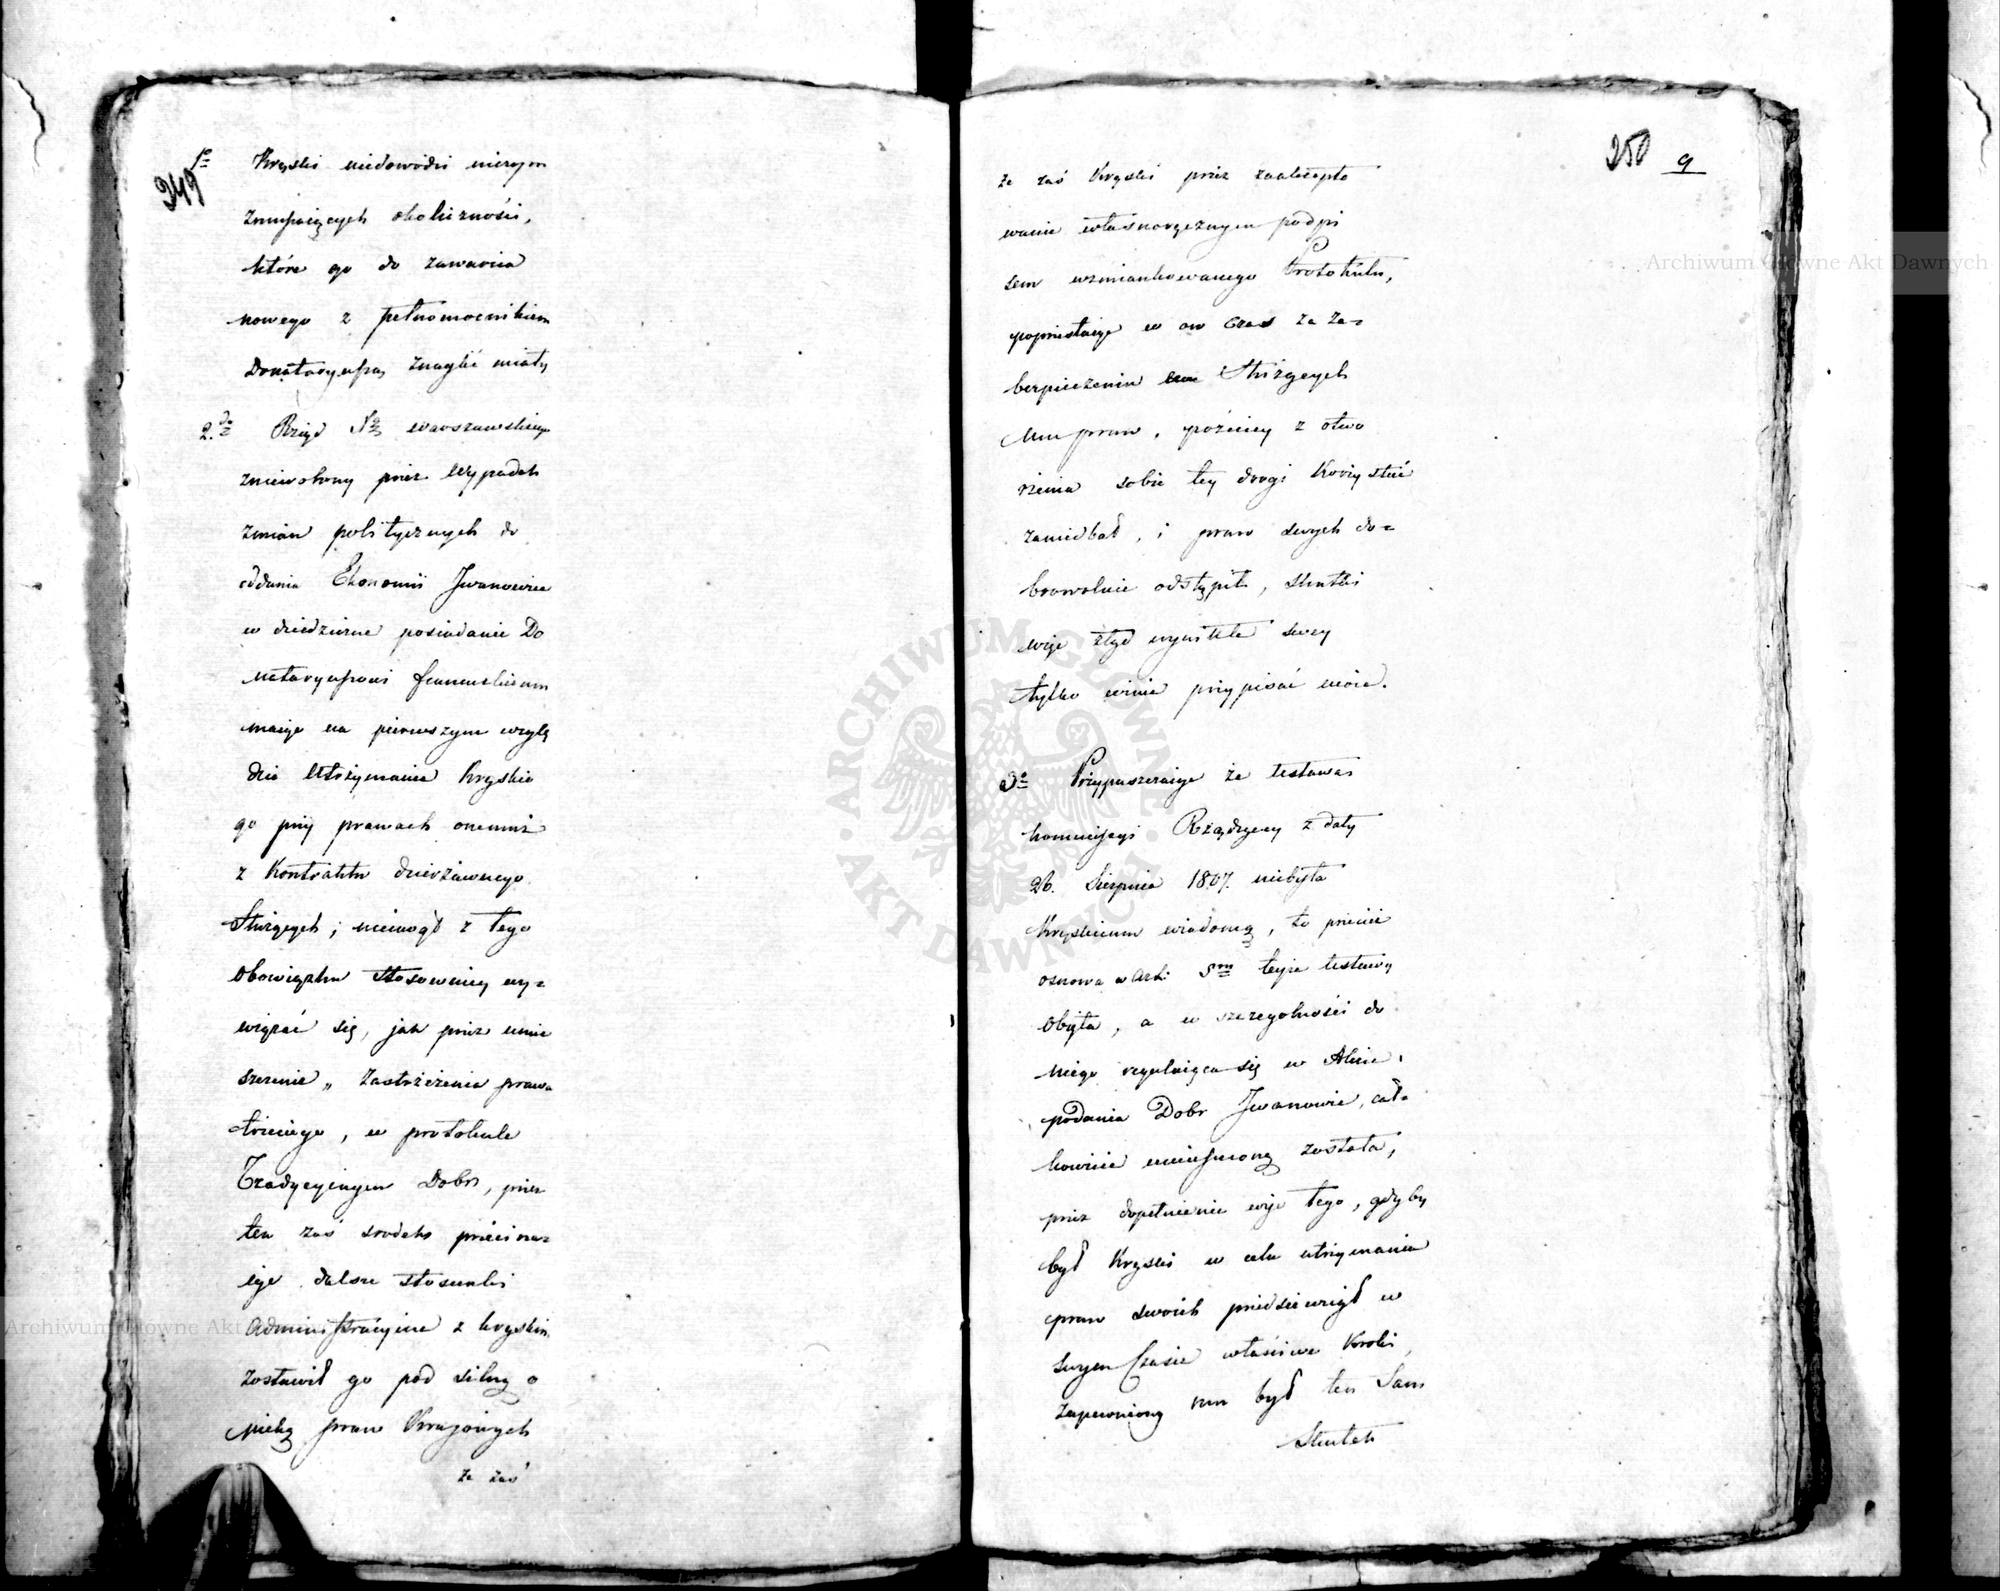 249
1º Kryski niedowodzi niczym
zmuszaiących okoliczności,
które go do zawarcia
nowego z pełnomocnikiem
Donataryusza znaglić miały
2.do Rząd Xa warszawskiego
zniewolony przez wypadek
zmian politycznych do
oddania Ekonomii Iwanowice
w dziedziczne posiadanie Do
nataryuszowi francuskiemu
maiąc na pierwszym wzglę
dzie utrzymanie Kryskie
go przy prawach onemuż
z Kontraktu dzierżawnego
służących; niemógł z tego
obowiązku stosowniey wy=
wiązać się, jak przez umie
szczenie „ zastrzeżenia prawa
trzeciego, w protokule
Tradycyinym Dobr, przez
ten zaś srodek przecina=
iąc dalsze stosunki
Administracyine z kryskim
zostawił go pod silną o
pieką praw Kraiowych
że zaś
250 9
że zaś Kryski przez zaakcepto
wanie własnoręcznym podpi
sem wzmiankowanego Protokułu,
poprzestaiąc w ow czas za za=
bezpieczeniu służących
mu praw, poźniey z otwo
rzenia sobie tey drogi korzystać
zaniedbał, i praw swych do=
browolnie odstąpił, skutki
więc ztąd wynikłe swey
tylko winie przypisać może.
3º Przypuszczaiąc że ustawa
kommissyi Rządzącey z daty
26. Sierpnia 1807. niebyła
Kryskiemu wiadomą, to przecie
osnowa w Art: 5m teyże ustawy
obięta, a w szczegolności do
niego reguluiąca się w Akcie
podania Dobr Iwanowic, cał=
kowicie umieszczoną została,
przez dopełnienie więc tego, gdyby
był Kryski w celu utrzymania
praw swoich przedsiewziął w
swym Czasie właściwe Kroki,
zapewniony mu był ten Sam
Skutek
Archiwum Główne Akt Dawnych
Archiwum Główne Akt Dawnych
ARCHIWUM GŁÓWNE AKT DAWNYCH